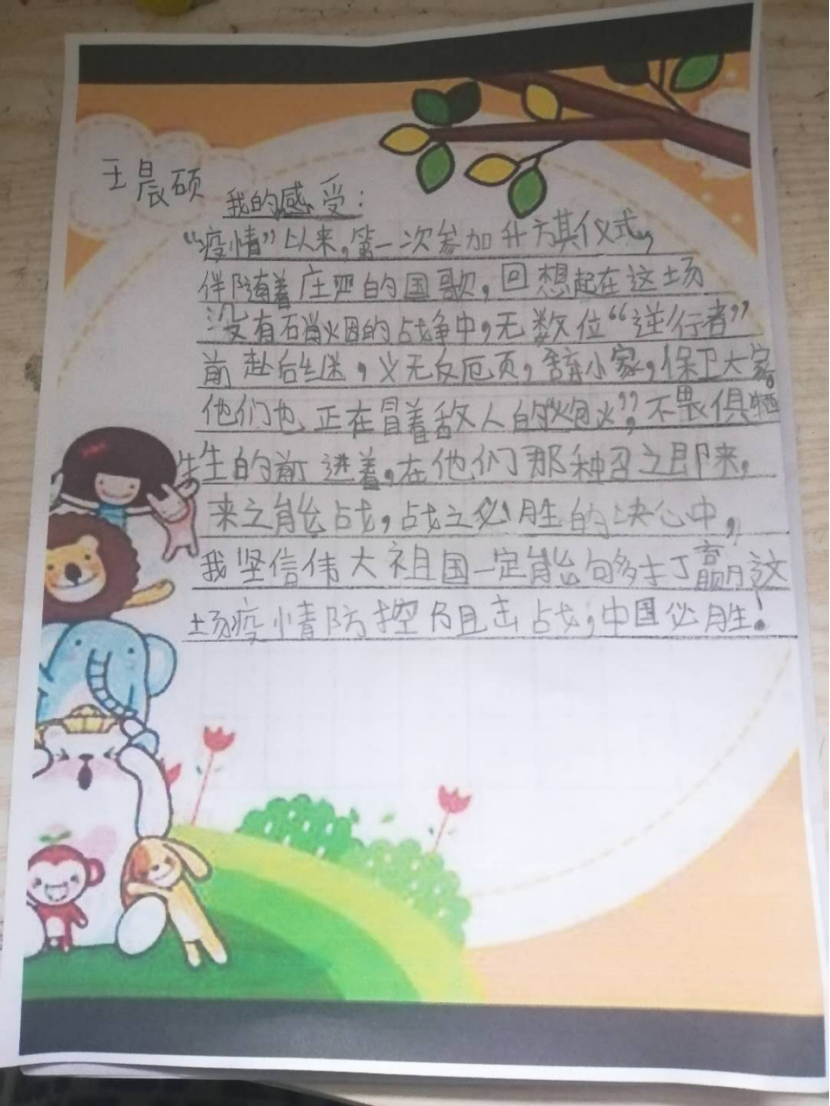 王晨硕
我的感受：
“疫情”以来，第一次参加升旗仪式，
伴随着庄严的国歌，回想起在这场
没有硝烟的战争中，无数位“逆行者”
前赴后继，义无反顾，舍小家，保卫大家。
他们也正在冒着敌人的“炮火”，不畏惧牺
牲的前进着，在他们那种召之即来，
来之能战，战之必胜的决心中，
我坚信伟大祖国一定能够打赢这
场疫情防控阻击战，中国必胜！